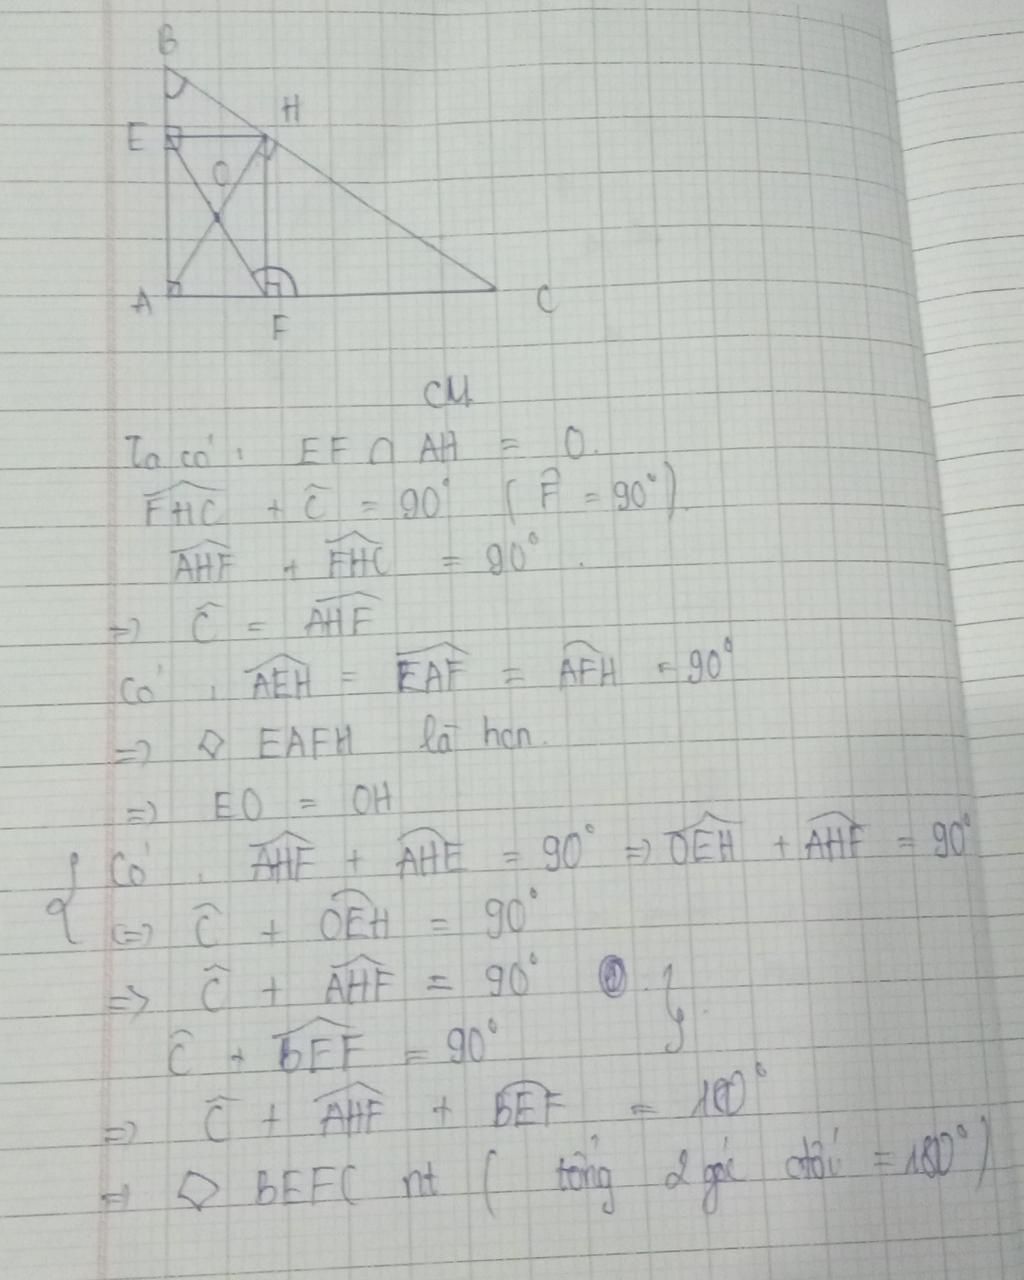 B
E
H
O
A
F
C
CM
Ta có: EF ∩ AH = O.
$\widehat{FHC}$ + $\widehat{C}$ = 90° ( $\widehat{F}$ = 90°)
$\widehat{AHF}$ + $\widehat{FHC}$ = 90°.
=> $\widehat{C}$ = $\widehat{AHF}$
Có: $\widehat{AEH}$ = $\widehat{EAF}$ = $\widehat{AFH}$ = 90°
=> ◇ EAFH là hcn.
=> EO = OH
{ Có: $\widehat{AHF}$ + $\widehat{AHE}$ = 90° => $\widehat{OEH}$ + $\widehat{AHF}$ = 90°
(=> $\widehat{C}$ + $\widehat{OEH}$ = 90°
=> $\widehat{C}$ + $\widehat{AHF}$ = 90° }
$\widehat{C}$ + $\widehat{BEF}$ = 90°
=> $\widehat{C}$ + $\widehat{AHF}$ + $\widehat{BEF}$ = 180°
=> ◇ BEFC nt ( tổng 2 góc đối = 180°)